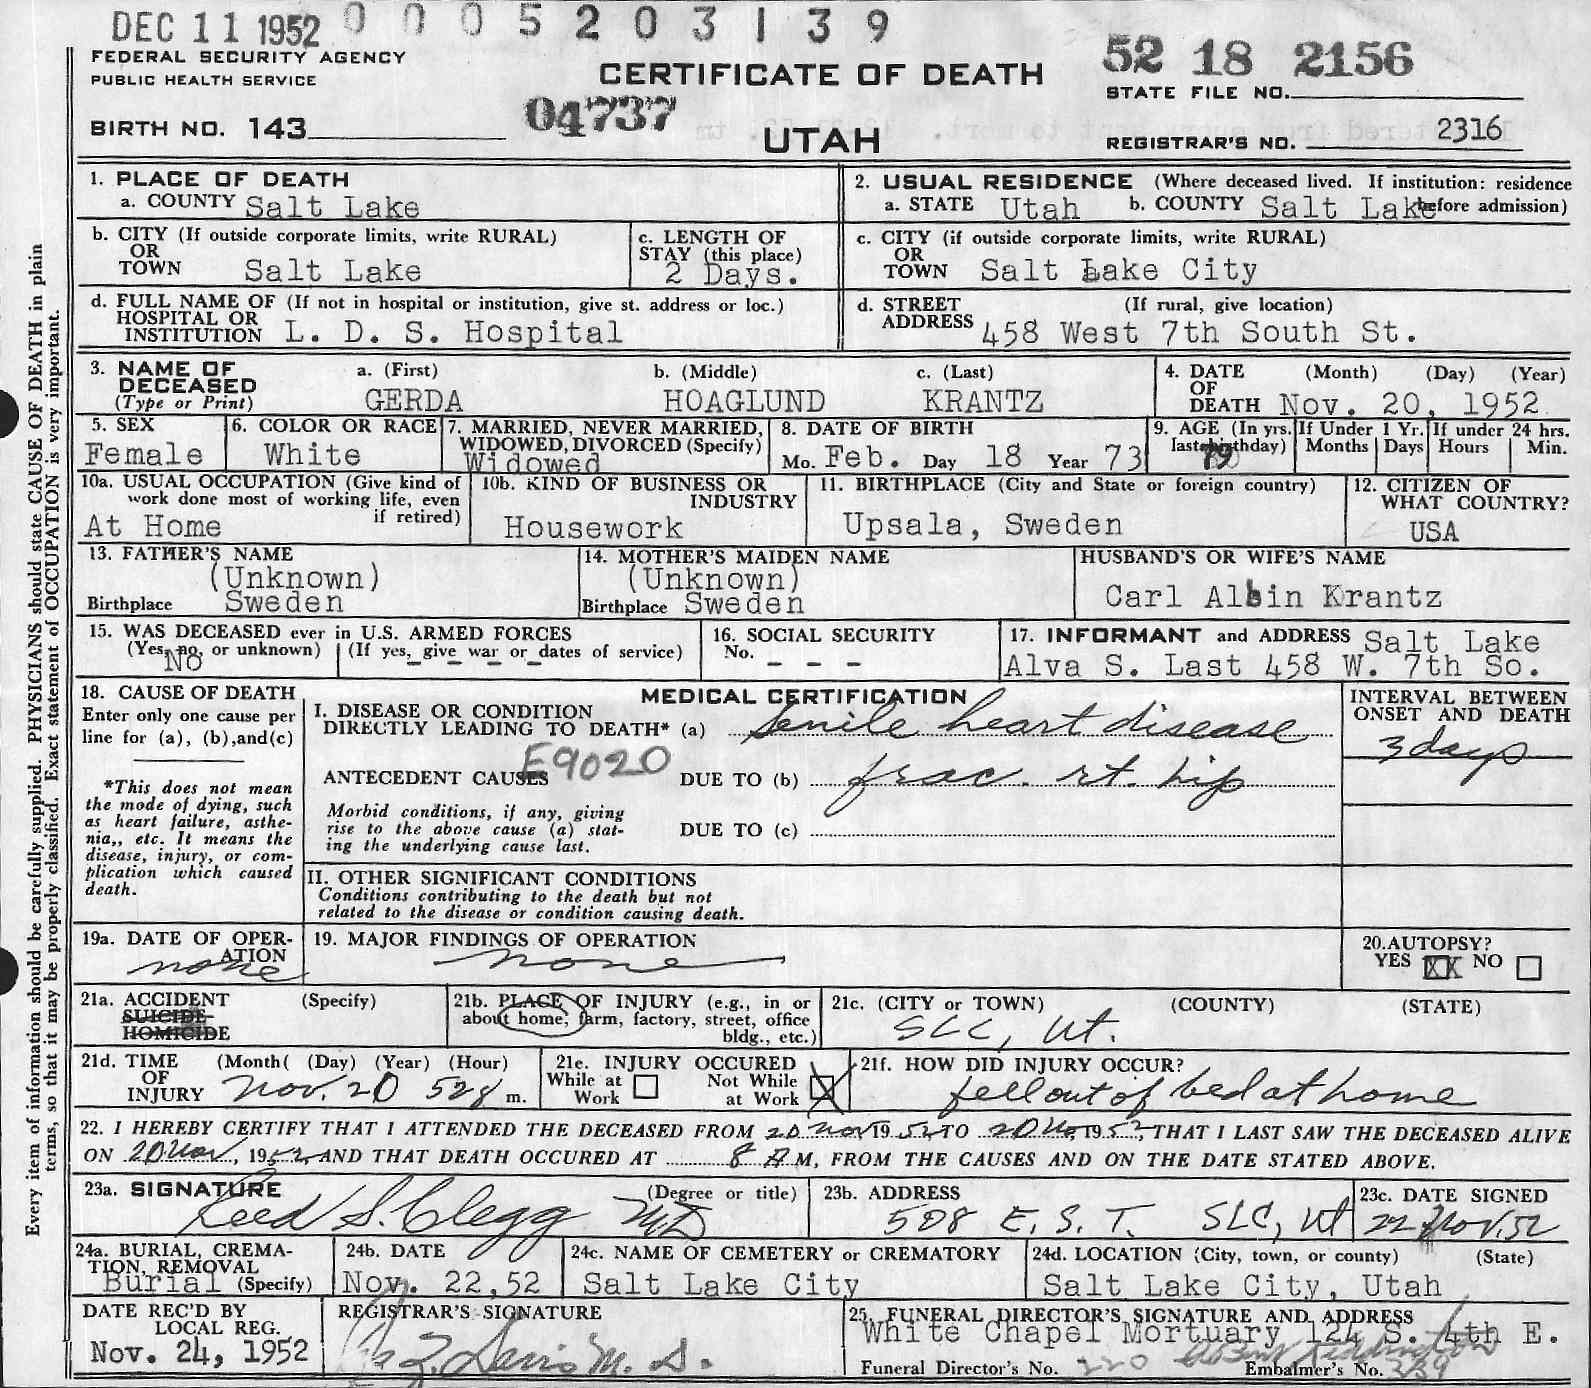 DEC 11 1952 0005203139
FEDERAL SECURITY AGENCY
PUBLIC HEALTH SERVICE
CERTIFICATE OF DEATH
52 18 2156
STATE FILE NO.
BIRTH NO. 143
04737
UTAH
REGISTRAR'S NO. 2316
Every item of information should be carefully supplied. PHYSICIANS should state CAUSE OF DEATH in plain
terms, so that it may be properly classified. Exact statement of OCCUPATION is very important.
1. PLACE OF DEATH
a. COUNTY Salt Lake
2. USUAL RESIDENCE (Where deceased lived. If institution: residence
before admission)
a. STATE Utah b. COUNTY Salt Lake
b. CITY (If outside corporate limits, write RURAL)
OR
TOWN Salt Lake
c. LENGTH OF
STAY (this place)
2 Days.
c. CITY (if outside corporate limits, write RURAL)
OR
TOWN Salt Lake City
d. FULL NAME OF (If not in hospital or institution, give st. address or loc.)
HOSPITAL OR
INSTITUTION L. D. S. Hospital
d. STREET (If rural, give location)
ADDRESS 458 West 7th South St.
3. NAME OF
DECEASED
(Type or Print)
a. (First) b. (Middle) c. (Last)
GERDA HOAGLUND KRANTZ
4. DATE (Month) (Day) (Year)
OF
DEATH Nov. 20, 1952
5. SEX
Female
6. COLOR OR RACE
White
7. MARRIED, NEVER MARRIED,
WIDOWED, DIVORCED (Specify)
Widowed
8. DATE OF BIRTH
Mo. Feb. Day 18 Year 73
9. AGE (In yrs.
last birthday)
If Under 1 Yr.
Months Days
If under 24 hrs.
Hours Min.
10a. USUAL OCCUPATION (Give kind of
work done most of working life, even
if retired)
At Home
10b. KIND OF BUSINESS OR
INDUSTRY
Housework
11. BIRTHPLACE (City and State or foreign country)
Upsala, Sweden
12. CITIZEN OF
WHAT COUNTRY?
USA
13. FATHER'S NAME
(Unknown)
Birthplace Sweden
14. MOTHER'S MAIDEN NAME
(Unknown)
Birthplace Sweden
HUSBAND'S OR WIFE'S NAME
Carl Albin Krantz
15. WAS DECEASED ever in U.S. ARMED FORCES
(Yes, no, or unknown) (If yes, give war or dates of service)
No - - - -
16. SOCIAL SECURITY
No. - - -
17. INFORMANT and ADDRESS Salt Lake
Alva S. Last 458 W. 7th So.
18. CAUSE OF DEATH
Enter only one cause per
line for (a), (b), and (c)
*This does not mean
the mode of dying, such
as heart failure, asthe-
nia,, etc. It means the
disease, injury, or com-
plication which caused
death.
MEDICAL CERTIFICATION
I. DISEASE OR CONDITION
DIRECTLY LEADING TO DEATH* (a) Senile heart disease
ANTECEDENT CAUSES E9020 DUE TO (b) frac. rt. hip
Morbid conditions, if any, giving
rise to the above cause (a) stat-
ing the underlying cause last.
DUE TO (c)
INTERVAL BETWEEN
ONSET AND DEATH
3 days
II. OTHER SIGNIFICANT CONDITIONS
Conditions contributing to the death but not
related to the disease or condition causing death.
19a. DATE OF OPER-
ATION
none
19. MAJOR FINDINGS OF OPERATION
none
20. AUTOPSY?
YES XX NO
21a. ACCIDENT (Specify)
SUICIDE
HOMICIDE
21b. PLACE OF INJURY (e.g., in or
about home, farm, factory, street, office
bldg., etc.)
21c. (CITY or TOWN) (COUNTY) (STATE)
SLC, Ut.
21d. TIME (Month( (Day) (Year) (Hour)
OF
INJURY Nov. 20 52 m.
21e. INJURY OCCURED
While at Work Not While at Work X
21f. HOW DID INJURY OCCUR?
fell out of bed at home
22. I HEREBY CERTIFY THAT I ATTENDED THE DECEASED FROM 20 Nov 1952 TO 20 Nov, 1952, THAT I LAST SAW THE DECEASED ALIVE
ON 20 Nov, 1952, AND THAT DEATH OCCURED AT 8 A M, FROM THE CAUSES AND ON THE DATE STATED ABOVE.
23a. SIGNATURE (Degree or title)
Reed S. Clegg MD
23b. ADDRESS
508 E. S. T. SLC, Ut
23c. DATE SIGNED
22 Nov. 52
24a. BURIAL, CREMA-
TION, REMOVAL
Burial (Specify)
24b. DATE
Nov. 22, 52
24c. NAME OF CEMETERY OR CREMATORY
Salt Lake City
24d. LOCATION (City, town, or county) (State)
Salt Lake City, Utah
DATE REC'D BY
LOCAL REG.
Nov. 24, 1952
REGISTRAR'S SIGNATURE
Davis M. D.
25. FUNERAL DIRECTOR'S SIGNATURE AND ADDRESS
White Chapel Mortuary 124 S. 4th E.
Funeral Director's No. 220 Embalmer's No. 339